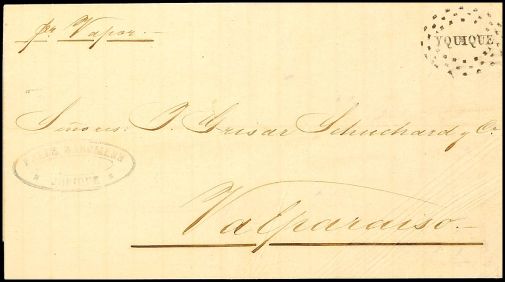 pr. Vapor.—
YQUIQUE
Señores: J. Grisar Schuchard y Co.
IQUIQUE
Valparaiso.—